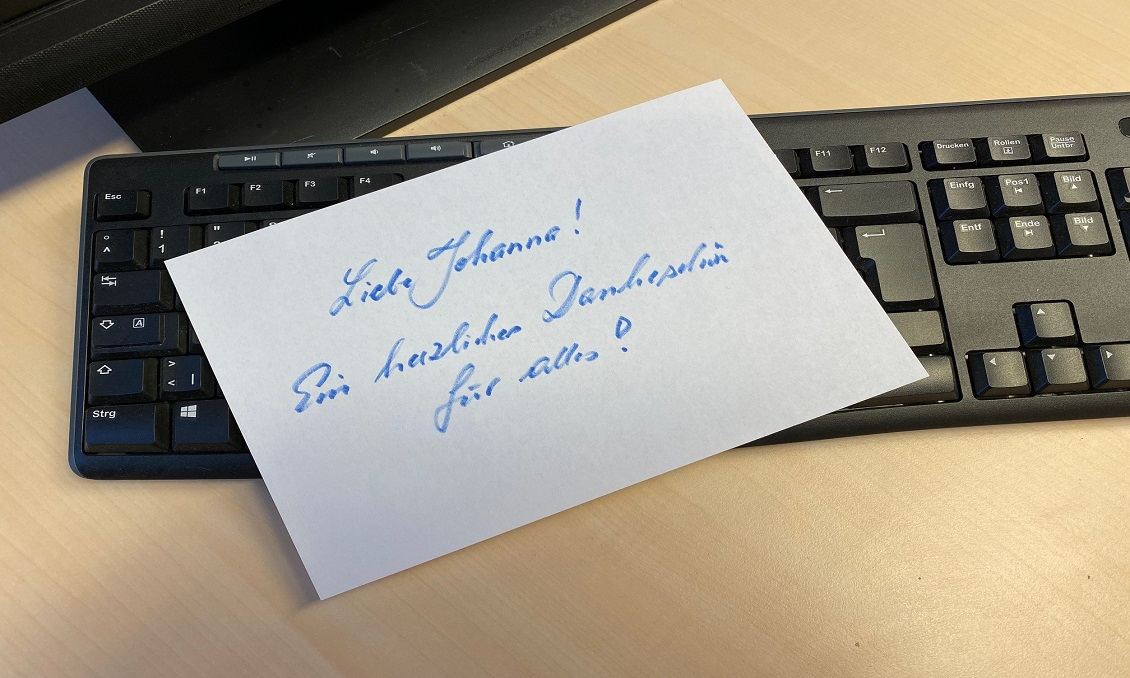 Liebe Johanna!
Ein herzliches Dankeschön
für alles!
Esc
F1
F2
F3
F4
F11
F12
Drucken
Rollen
Pause
Untbr
°
^
!
1
"
Einfg
Pos1
Bild
Entf
Ende
Bild
A
>
< |
Strg